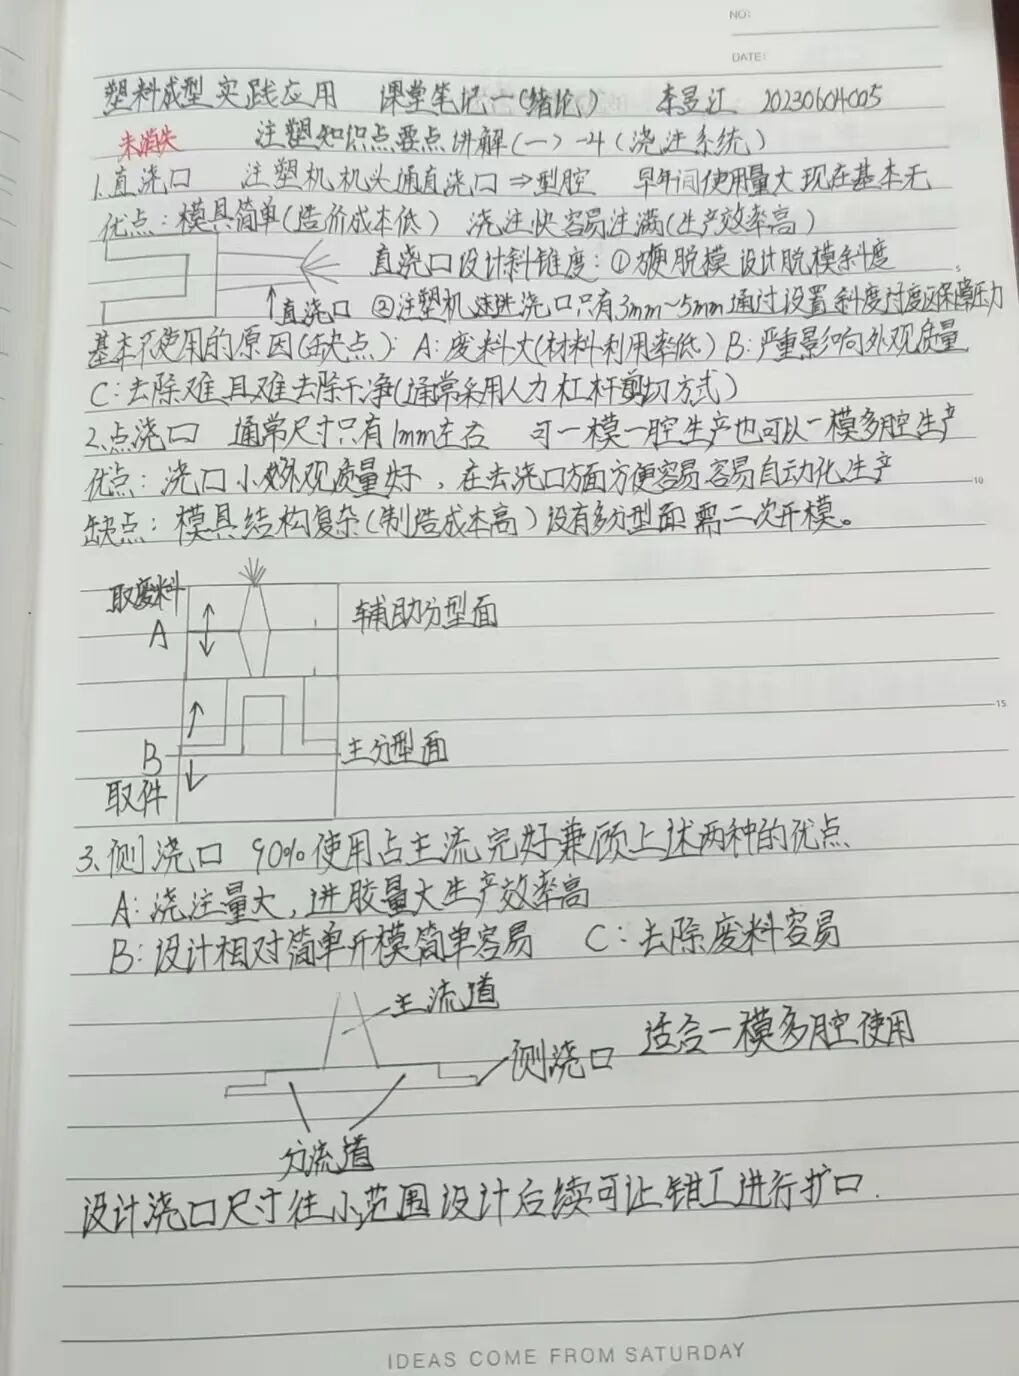 NO:
DATE:
塑料成型实践应用 课堂笔记一(绪论) 李昱江 20230604005
注塑知识点要点讲解(一)-4(浇注系统)
1.直浇口 注塑机机头通直浇口⇒型腔 早年间使用量大现在基本无
优点:模具简单(造价成本低) 浇注快容易注满(生产效率高)
直浇口设计斜锥度:①方便脱模设计脱模斜度
直浇口 ②注塑机进浇口只有3mm~5mm通过设置斜度过度以保障压力
基本不使用的原因(缺点):A:废料大(材料利用率低)B:严重影响外观质量
C:去除难且难去除干净(通常采用人力杠杆剪切方式)
2.点浇口 通常尺寸只有1mm左右 可一模一腔生产也可以一模多腔生产
优点:浇口小外观质量好,在去浇口方面方便容易容易自动化生产
10
缺点:模具结构复杂(制造成本高)设有多分型面需二次开模。
取废料
A
辅助分型面
15
B
主分型面
取件
3、侧浇口 90%使用占主流完好兼顾上述两种的优点
A:浇注量大,进胶量大生产效率高
B:设计相对简单开模简单容易 C:去除废料容易
主流道
侧浇口 适合一模多腔使用
分流道
设计浇口尺寸往小范围设计后续可让钳工进行扩口.
IDEAS COME FROM SATURDAY